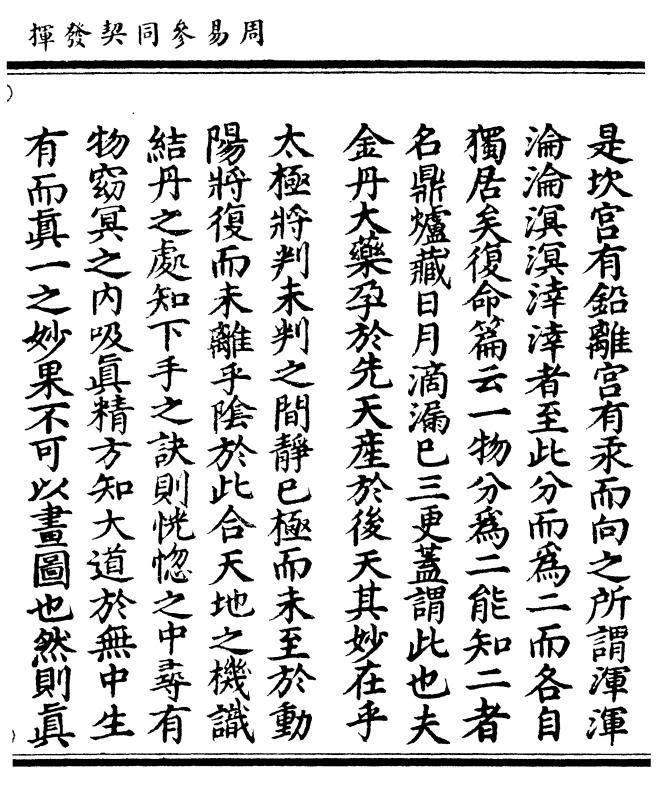 周易參同契發揮
是坎宫有鉛離宫有汞而向之所謂渾渾
淪淪溟溟涬涬者至此分而爲二而各自
獨居矣復命篇云一物分爲二能知二者
名鼎爐藏日月滴漏已三更蓋謂此也夫
金丹大藥孕於先天産於後天其妙在乎
太極將判未判之間靜已極而未至於動
陽將復而未離乎陰於此合天地之機識
結丹之處知下手之訣則恍惚之中尋有
物窈冥之内吸真精方知大道於無中生
有而真一之妙果不可以畫圖也然則真